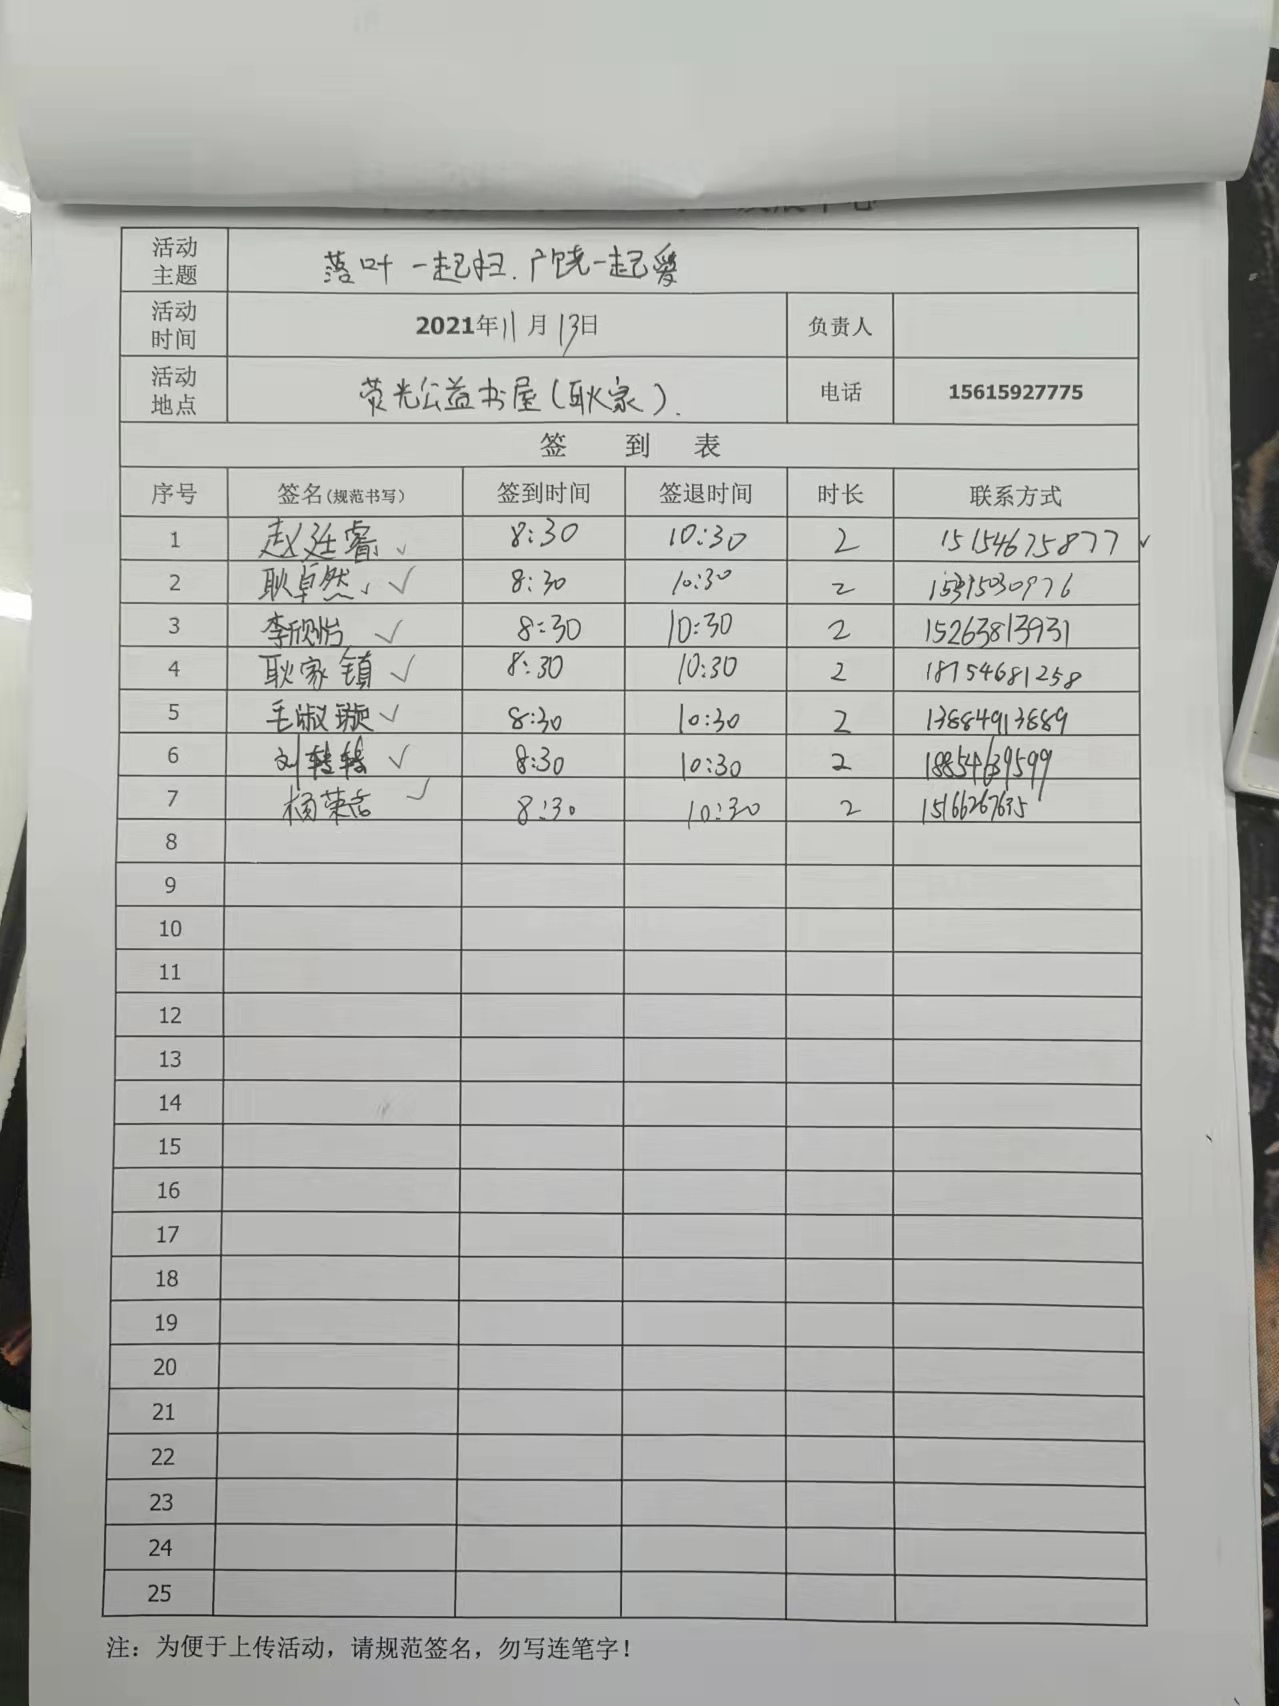 活动主题 落叶一起扫.广饶一起爱
活动时间 2021年11月13日 负责人
活动地点 荧光公益书屋(耿家). 电话 15615927775
签 到 表
序号 签名(规范书写) 签到时间 签退时间 时长 联系方式
1 赵廷睿 ✓ 8:30 10:30 2 15154675877 ✓
2 耿卓然 ✓ 8:30 10:30 2
3 李欣怡 ✓ 8:30 10:30 2 15263813931
4 耿家镇 ✓ 8:30 10:30 2 18754681258
5 毛淑璇 ✓ 8:30 10:30 2 13884913889
6 刘转转 ✓ 8:30 10:30 2 18854639599
7 ✓ 8:30 10:30 2 15166267635
8
9
10
11
12
13
14
15
16
17
18
19
20
21
22
23
24
25
注：为便于上传活动，请规范签名，勿写连笔字！